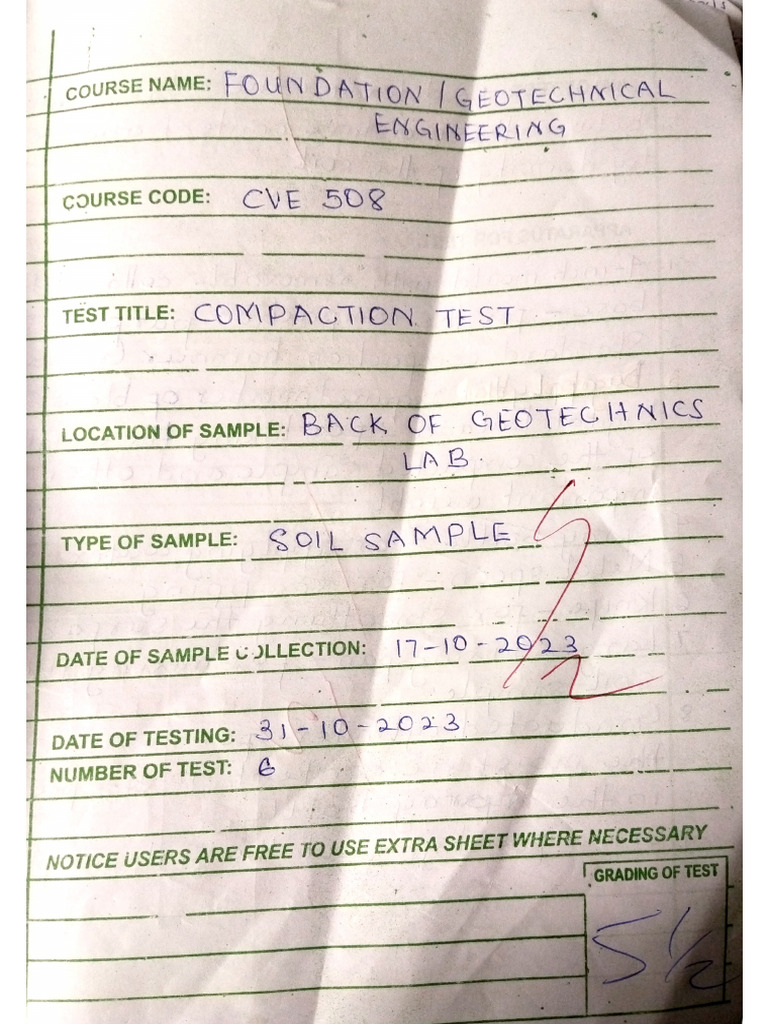 COURSE NAME: FOUNDATION / GEOTECHNICAL
ENGINEERING
COURSE CODE: CVE 508
TEST TITLE: COMPACTION TEST
LOCATION OF SAMPLE: BACK OF GEOTECHNICS
LAB.
TYPE OF SAMPLE: SOIL SAMPLE
DATE OF SAMPLE COLLECTION: 17-10-2023
DATE OF TESTING: 31-10-2023
NUMBER OF TEST: 6
NOTICE USERS ARE FREE TO USE EXTRA SHEET WHERE NECESSARY
GRADING OF TEST
5 1/2